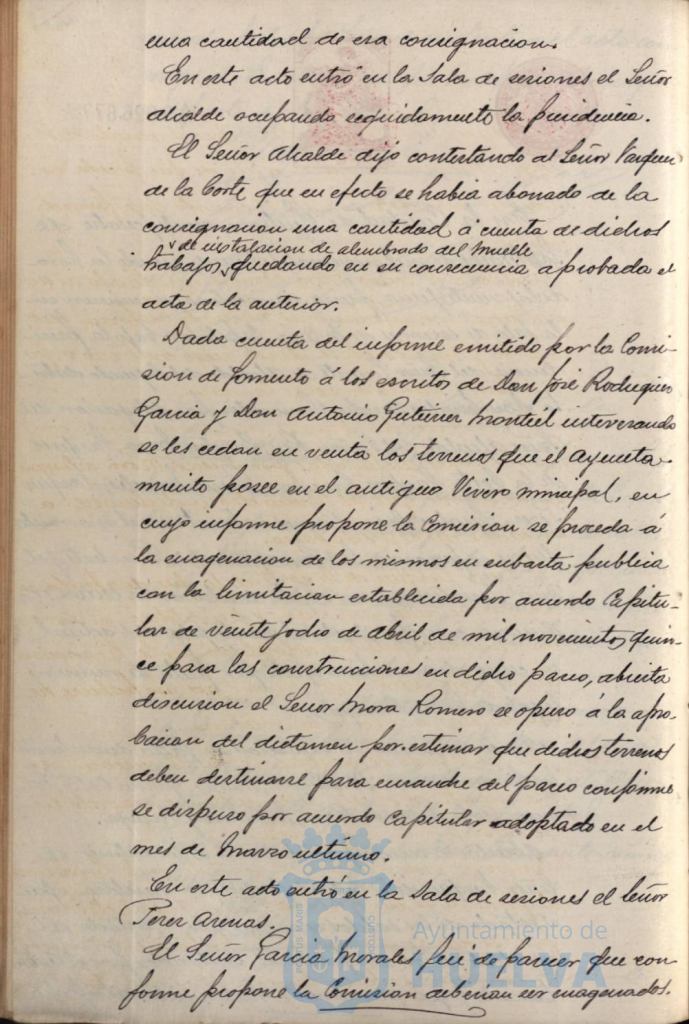 una cantidad de esa consignacion.
En este acto entró en la Sala de sesiones el Señor
alcalde ocupando seguidamente la presidencia.
El Señor Alcalde dijo contestando al Señor Vazquez
de la Corte que en efecto se habia abonado de la
consignacion una cantidad á cuenta de dichos
y de instalacion de alumbrado del Muelle
trabajos, quedando en su consecuencia aprobada el
acta de la anterior.
Dada cuenta del informe emitido por la Comi-
sion de Fomento á los escritos de Don José Rodriguez
Garcia y Don Antonio Gutierrez Montiel interesando
se les cedan en venta los terrenos que el Ayunta-
miento posee en el antiguo Vivero minicipal, en
cuyo informe propone la Comision se proceda á
la enagenacion de los mismos en subasta publica
con la limitacion establecida por acuerdo Capitu-
lar de veinte y ocho de Abril de mil novecientos quin-
ce para las construcciones en dicho paseo, abierta
discusion el Señor Mora Romero se opuso á la apro-
bacion del dictamen por estimar que dichos terrenos
deben destinarse para ensanche del paseo conforme
se dispuso por acuerdo Capitular adoptado en el
mes de Marzo ultimo.
En este acto entró en la Sala de sesiones el Señor
Perez Arenas.
El Señor Garcia Morales fué de parecer que con-
forme propone la Comision deberian ser enagenados.
Ayuntamiento de
HUELVA